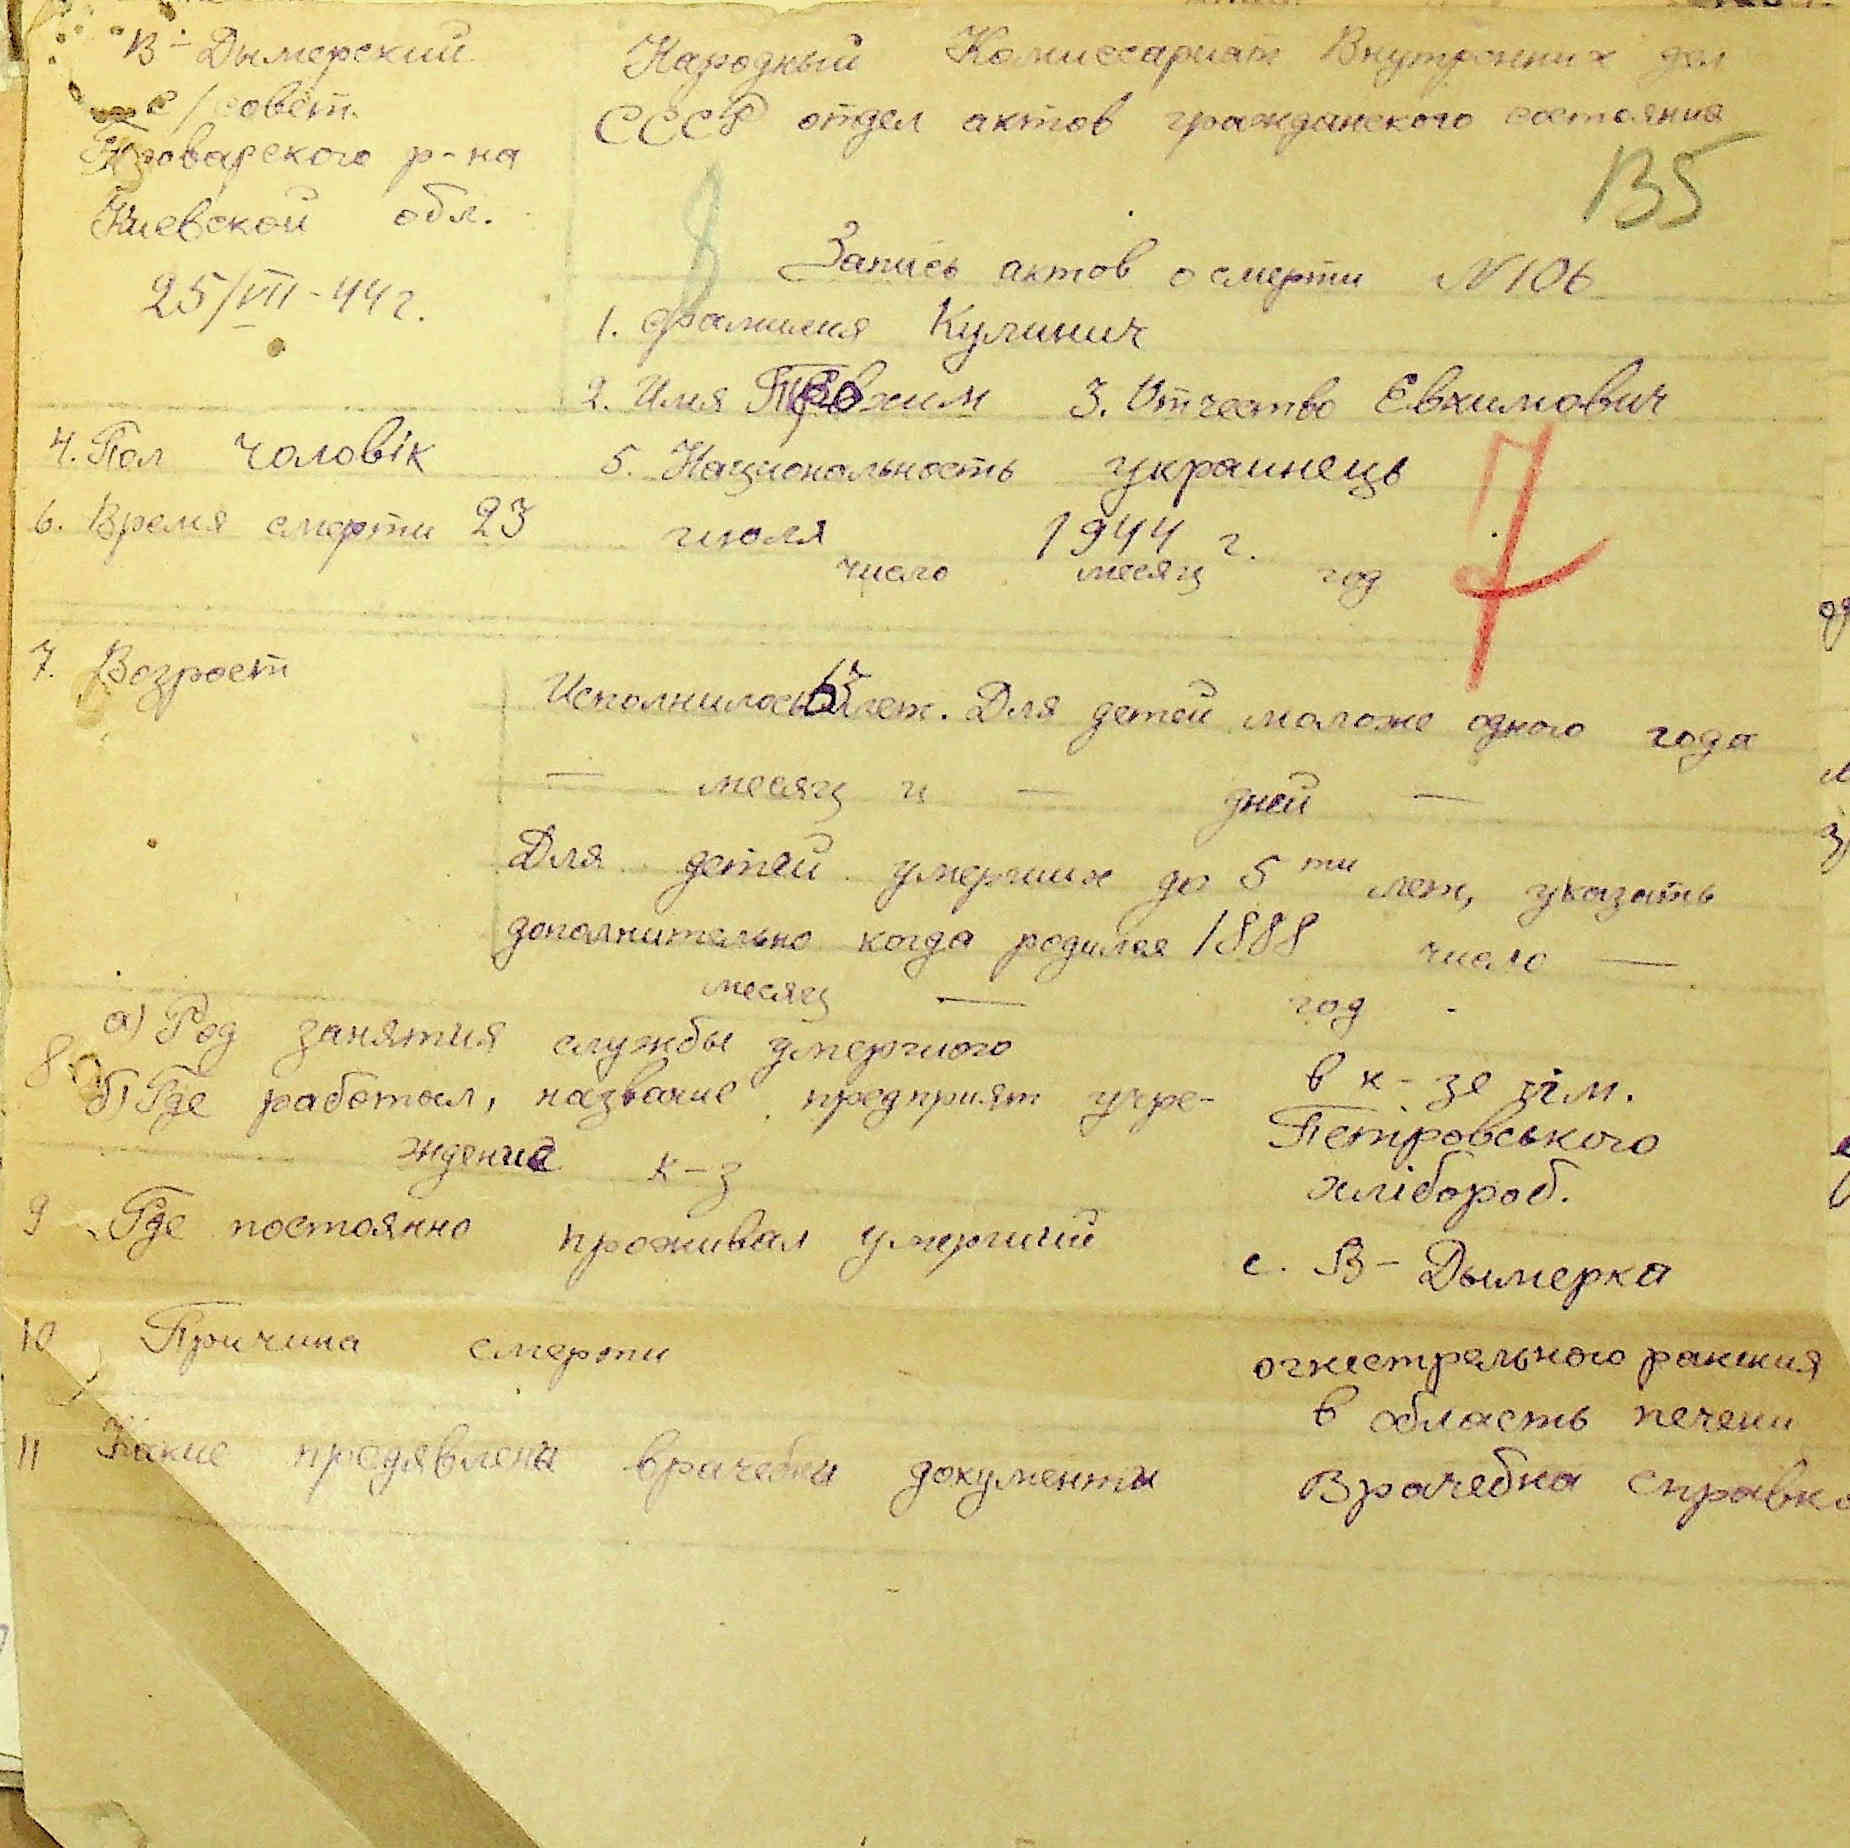 В-Дымерский
с/совет.
Броварского р-на
Киевской обл.
25/VIII-44 г.
Народный Комиссариат Внутренних дел
СССР отдел актов гражданского состояния
135
Запись актов о смерти N 106
1. Фамилия Кулинич
2. Имя 3. Отчество Евхимович
4. Пол чоловік 5. Национольность украинець
6. Время смерти 23 июля 1944 г.
число месяц год
7. Возрост
Исполнилось лет. Для детей моложе одного года
— месяц и — дней —
Для детей умерших до 5 ти лет, указать
дополнительно когда родился 1888 число —
месяц — год -
8 а) Род занятия службы умершого
б) Где работал, название предприят учре-
ждения к-з
в к-зе ім.
Петровського
хлібороб.
9 Где постоянно проживал умерший
с. В-Дымерка
10 Причина смерти
огнестрельного ранения
в область печени
11 Какие предявлены врачебни документы
Врачебна справка